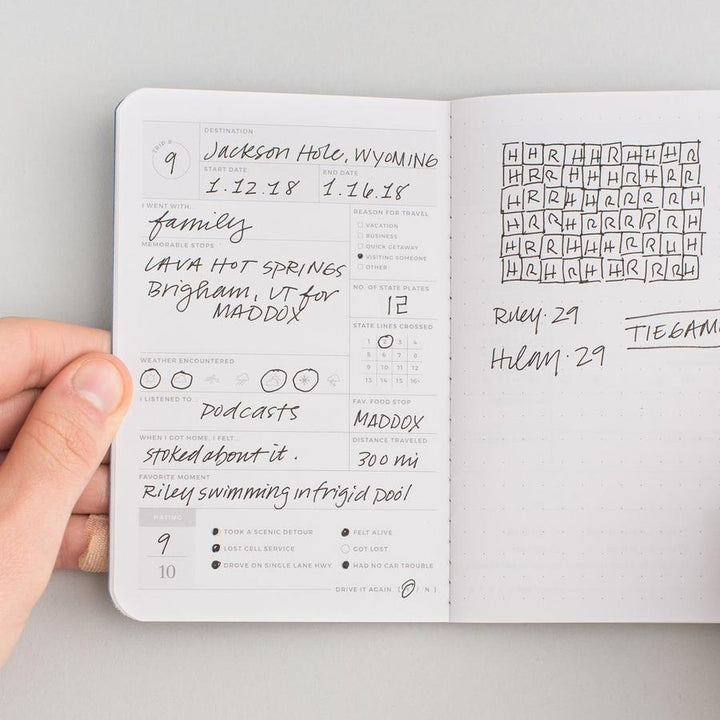 TRIP #
9
DESTINATION
Jackson Hole, WYOMING
START DATE
1.12.18
END DATE
1.16.18
I WENT WITH...
family
REASON FOR TRAVEL
VACATION
BUSINESS
QUICK GETAWAY
VISITING SOMEONE
OTHER
MEMORABLE STOPS
LAVA HOT SPRINGS
Brigham, UT for
MADDOX
NO. OF STATE PLATES
12
STATE LINES CROSSED
1 2 3 4
5 6 7 8
9 10 11 12
13 14 15 16+
WEATHER ENCOUNTERED
I LISTENED TO...
podcasts
FAV. FOOD STOP
MADDOX
WHEN I GOT HOME, I FELT...
stoked about it.
DISTANCE TRAVELED
300 mi
FAVORITE MOMENT
Riley swimming in frigid pool
RATING
9
10
TOOK A SCENIC DETOUR
LOST CELL SERVICE
DROVE ON SINGLE LANE HWY
FELT ALIVE
GOT LOST
HAD NO CAR TROUBLE
DRIVE IT AGAIN. [ / N ]
Riley. 29
Hilary. 29
TIEGAM